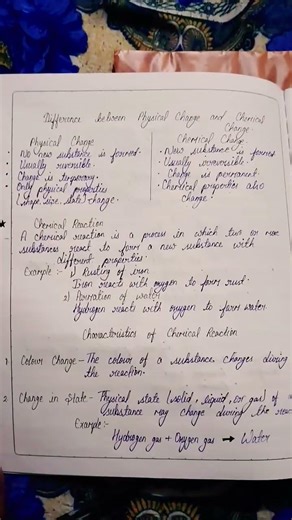 Difference between Physical Change and Chemical
Change
Physical Change
· No new substance is formed.
· Usually reversible.
· Change is temporary.
· Only physical properties
shape, size, state change.
Chemical Change
· New substance is formed
· Usually irreversible.
· Change is permanent
· Chemical properties also
change.
★ Chemical Reaction
- A chemical reaction is a process in which two or more
substances react to form a new substance with
different properties.
Example :- 1) Rusting of iron
Iron reacts with oxygen to form rust.
2) Formation of water
Hydrogen reacts with oxygen to form water.
Characteristics of Chemical Reaction
1. Colour Change - The colour of a substance changes during
the reaction.
2. Change in State - Physical state (solid, liquid, or gas) of
substance may change during the
Example:-
Hydrogen gas + Oxygen gas → Water